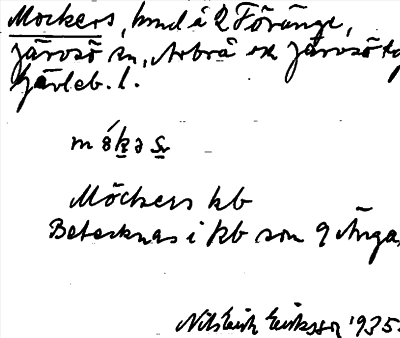 Mockers, hmd å 2 Föränge,
järvsö sn, Arbrå ox järvsö tg
Gävleb. l.
Möckers kb
Betecknas i kb som 9 Änga,
Nils Erik Eriksson 1935.